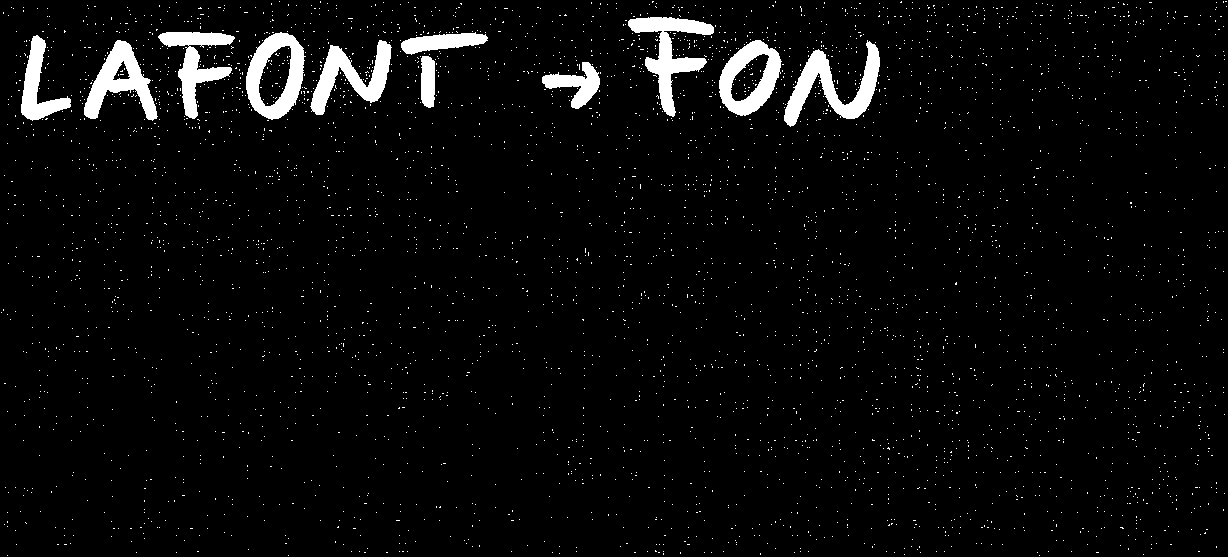 LAFONT → FON